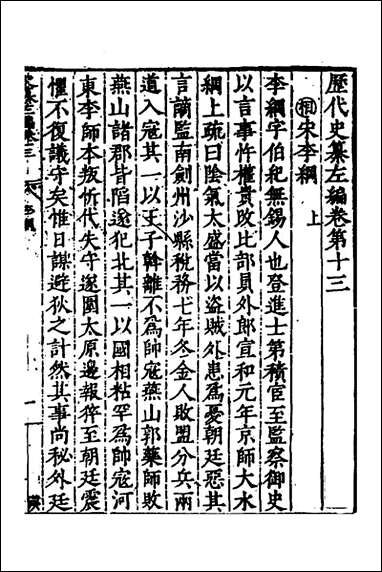 歷代史纂左編卷第十三
相宋李綱 上
李綱字伯紀無錫人也登進士第積官至監察御史
以言事忤權貴改比部員外郎宣和元年京師大水
綱上疏曰陰氣太盛當以盜賊外患爲憂朝廷惡其
言謫監南劍州沙縣稅務七年冬金人敗盟分兵兩
道入寇其一以王子斡離不爲帥寇燕山郭藥師敗
燕山諸郡皆陷遂犯北其一以國相粘罕爲帥寇河
東李師本叛忻代失守遂圍太原邊報猝至朝廷震
懼不復議守矣惟日謀避狄之計然其事尚秘外廷